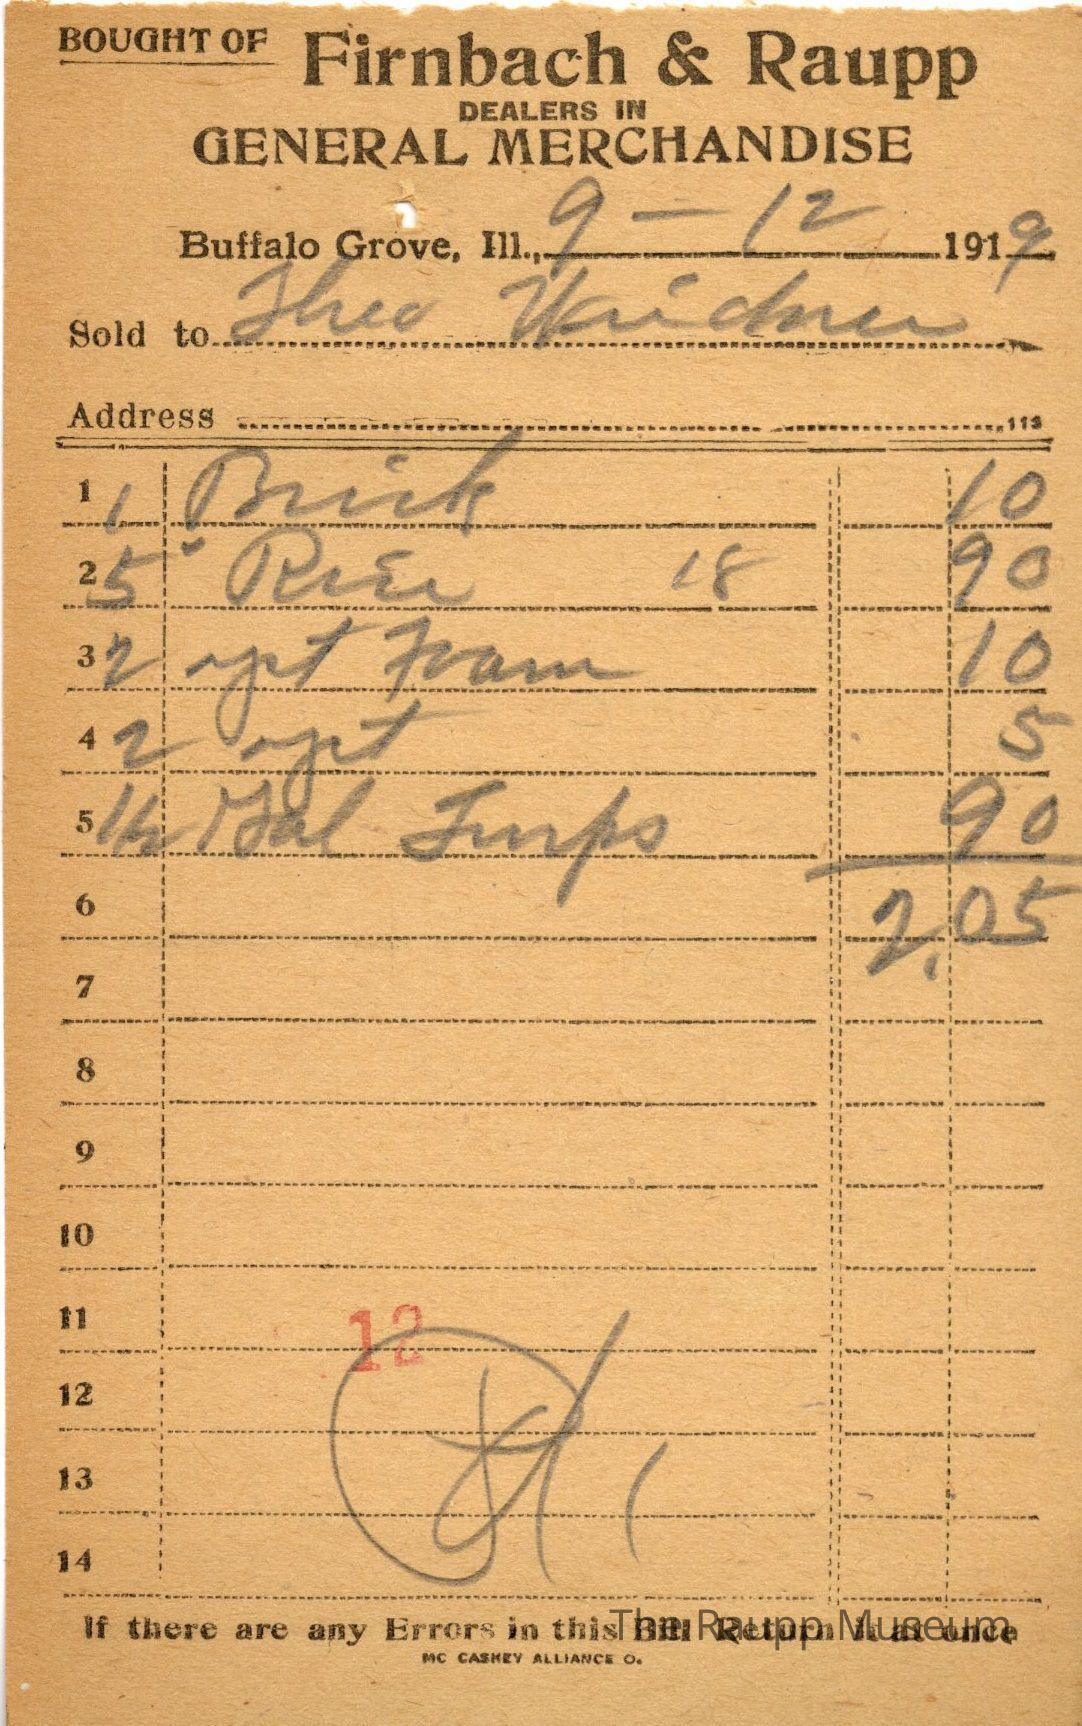 BOUGHT OF Firnbach & Raupp
DEALERS IN
GENERAL MERCHANDISE
Buffalo Grove, Ill., 9 - 12 1919
Sold to Theo Weidner
Address 113
1 1 Brick 10
2 5 " Rice 18 90
3 2 ypt Foam 10
4 2 ypt 5
5 1/2 Gal Turps 90
6 2.05
7
8
9
10
11
12
12
13
14
If there are any Errors in this Bill Return it at once
The Raupp Museum
MC CASKEY ALLIANCE O.